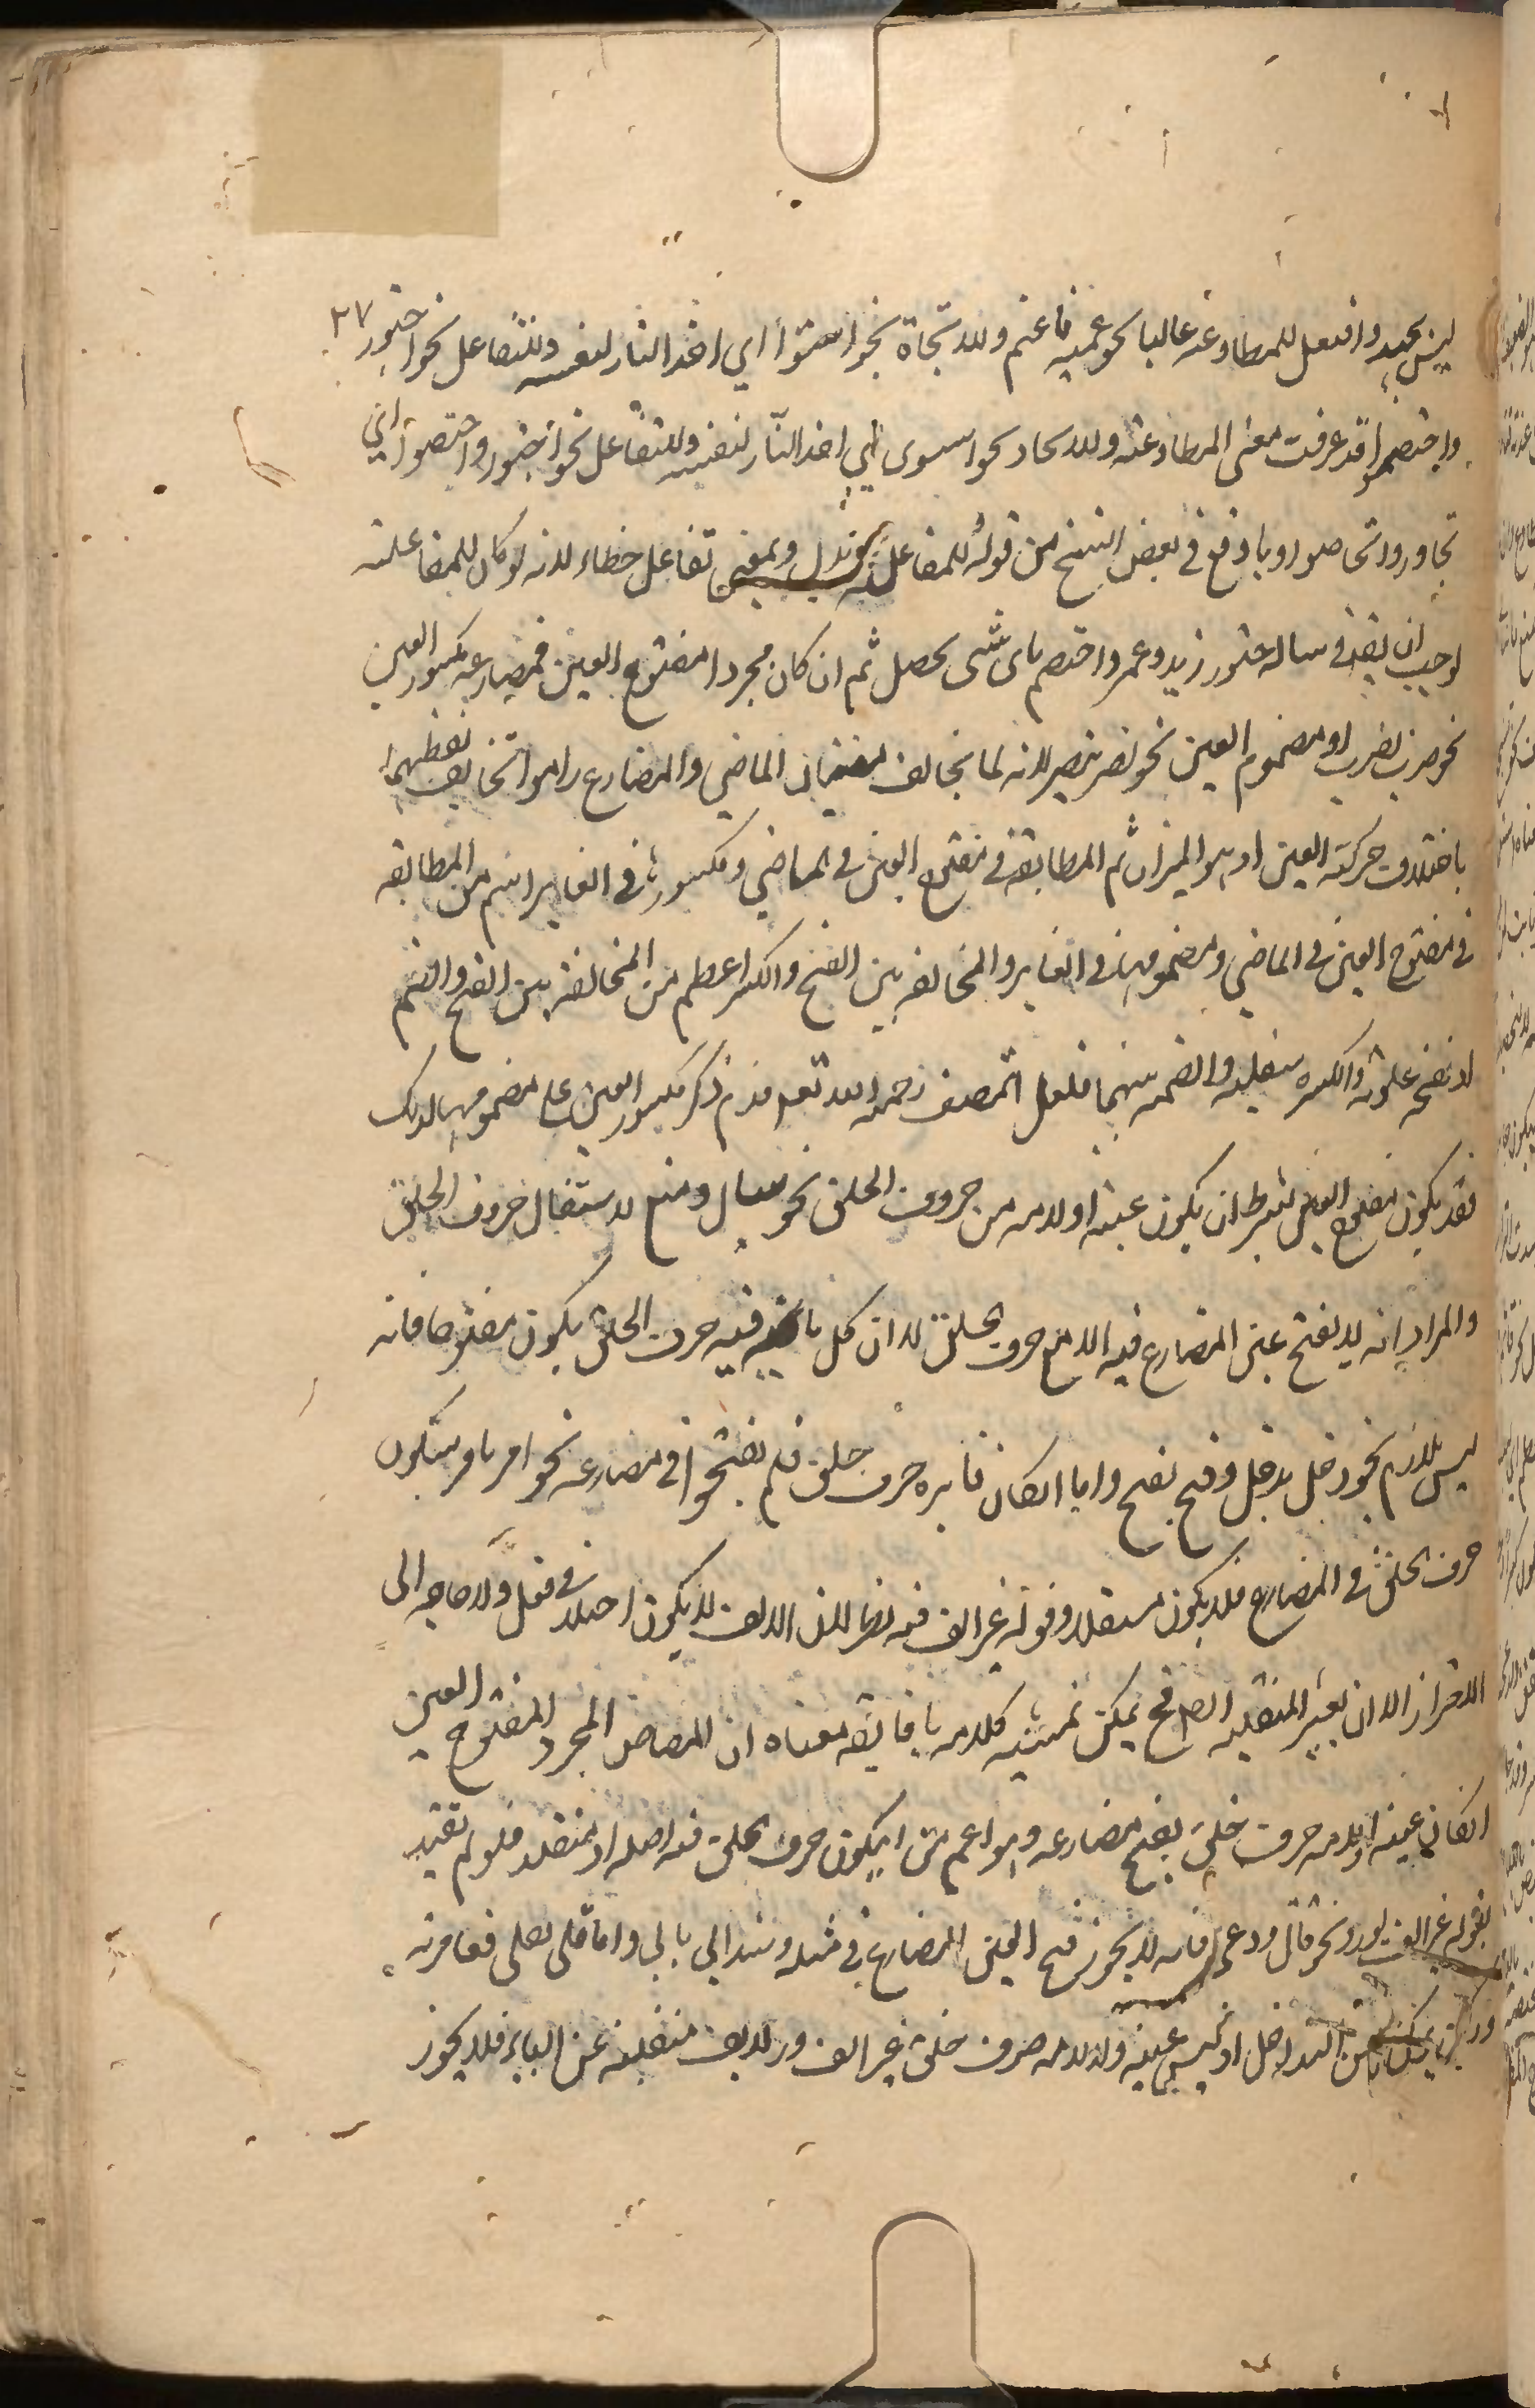 ليس بجيد وافتعل للمطاوعة غالبا نحو غمته فاغتم وللاتخاذ نحو اشتوا اي اخذ الثار لنفسه وللتفاعل نحو اجتور ٣٧
واختصموا قد عرفت معنى المطاوعته وللاتحاد نحو استوى اي اخذ النار لنفسه وللتفاعل نحو اجتوروا واختصموا اي
تجاوروا وتخاصموا وما وقع في بعض النسخ من قوله للمفاعل وبمعنى تفاعل خطاء لانه لو كان للمفاعلة
لوجب ان يقع في ساله جتور زيد وعمر واختصم باى شى يحصل ثم ان كان مجردا مفتوح العين فمضارعه مكسور العين
نحو ضرب يضرب او مضموم العين نحو نصر ينصر لانه لما تخالف معنيان الماضي والمضارع راموا تخالف لفظهما
باختلاف حركة العين اذ هو الميزان ثم المطابقة في مفتوح العين في الماضي ومكسورها في الغابر اتم من المطابقه
في مفتوح العين في الماضي ومضمومها في الغابر والمخالفه بين الفتح والكسر اعظم من المخالفه بين الفتح والضم
لان الفتح علوية والكسر سفلية والضمه بينهما فلعل المصنف رحمه الله تعم قدم ذكر مكسور العين على مضمومها لذلك
فقد يكون مفتوح العين بشرط ان يكون عينه او لامه من حروف الحلق نحو سال ومنع لاستثقال حروف الحلق
والمراد انه لا يفتح عين المضارع فيه الا مع حرف الحلق لا ان كل ما فيه حرف الحلق يكون مفتوحا فانه
ليس بلازم نحو دخل يدخل وفتح يفتح واما ان كان فائه حرف حلق فلم يفتحوا في مضارعه نحو امر يامر لسكون
حرف الحلق في المضارع فلا يكون مستثقلا وقوله غير الف فيه نظر لان الالف لا يكون اصلا في فعل ولا حاجه الى
الاحتراز الا ان يعتبر المنقلبه الصالح يمكن تمشيه كلامه بما يقه معناه ان الماضى المجرد المفتوح العين
ان كان عينه او لامه حرف حلق يفتح مضارعه وهو اعم من ان يكون حرف الحلق فيه اصله او منقلبه فلو لم يقيد
بقوله غير الف لورد نحو قال ودعى فانه لا يجوز فتح العين المضارع في مثله وشذ ابي يابي واما قلى يقلى فعامرية
وركن يركن من التداخل اذ ليس عينه ولا لامه حرف حلق غير الف ولا الف منقلبة عن الياء فلا يجوز